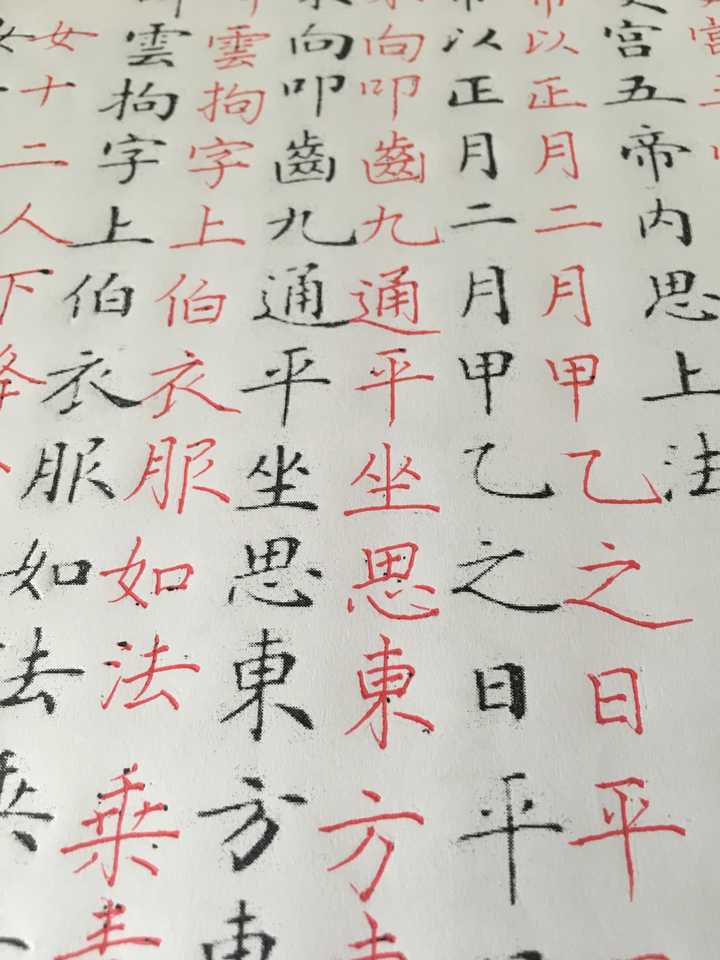 宮五帝內思上法
以正月二月甲乙之日平
以正月二月甲乙之日平
向叩齒九通平坐思東方
向叩齒九通平坐思東方
雲拘字上伯衣服如法乘
雲拘字上伯衣服如法乘
女十二人下降
女